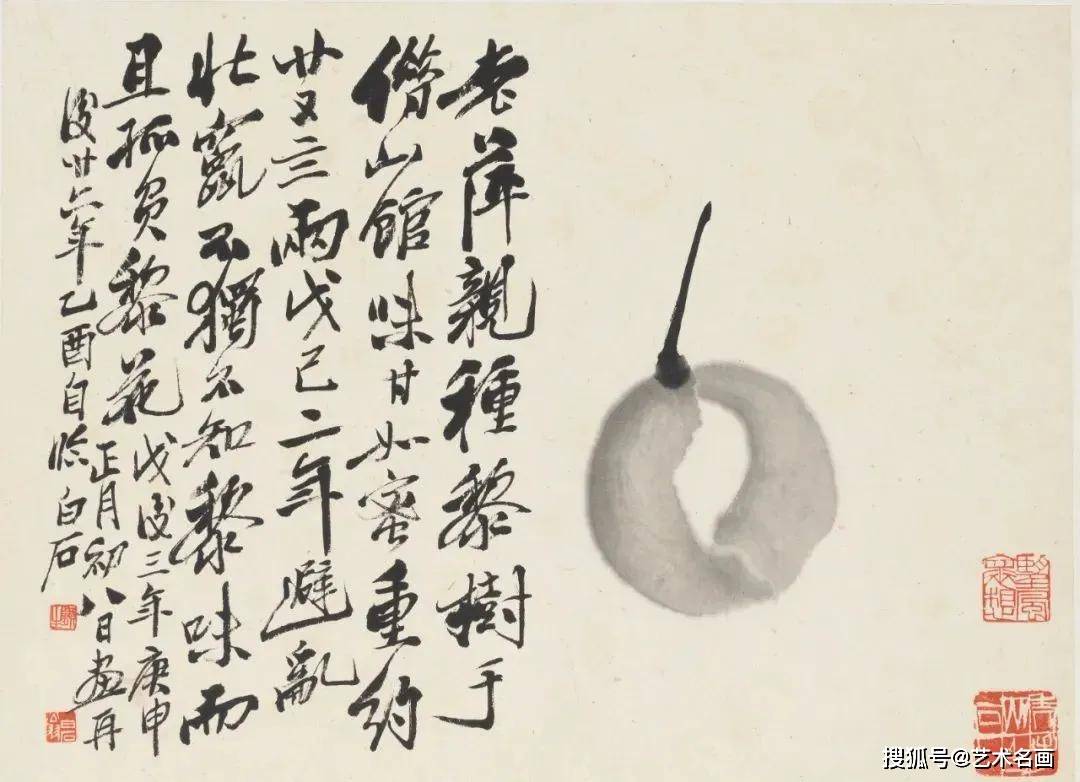 老萍親種黎樹于
借山館味甘如蜜重約
廿又三兩戊己二年避亂
北竄不獨不知黎味而
且孤負黎花
戊後三年庚申
正月初八日畫再
後廿六年乙酉自臨白石
搜狐号@艺术名画